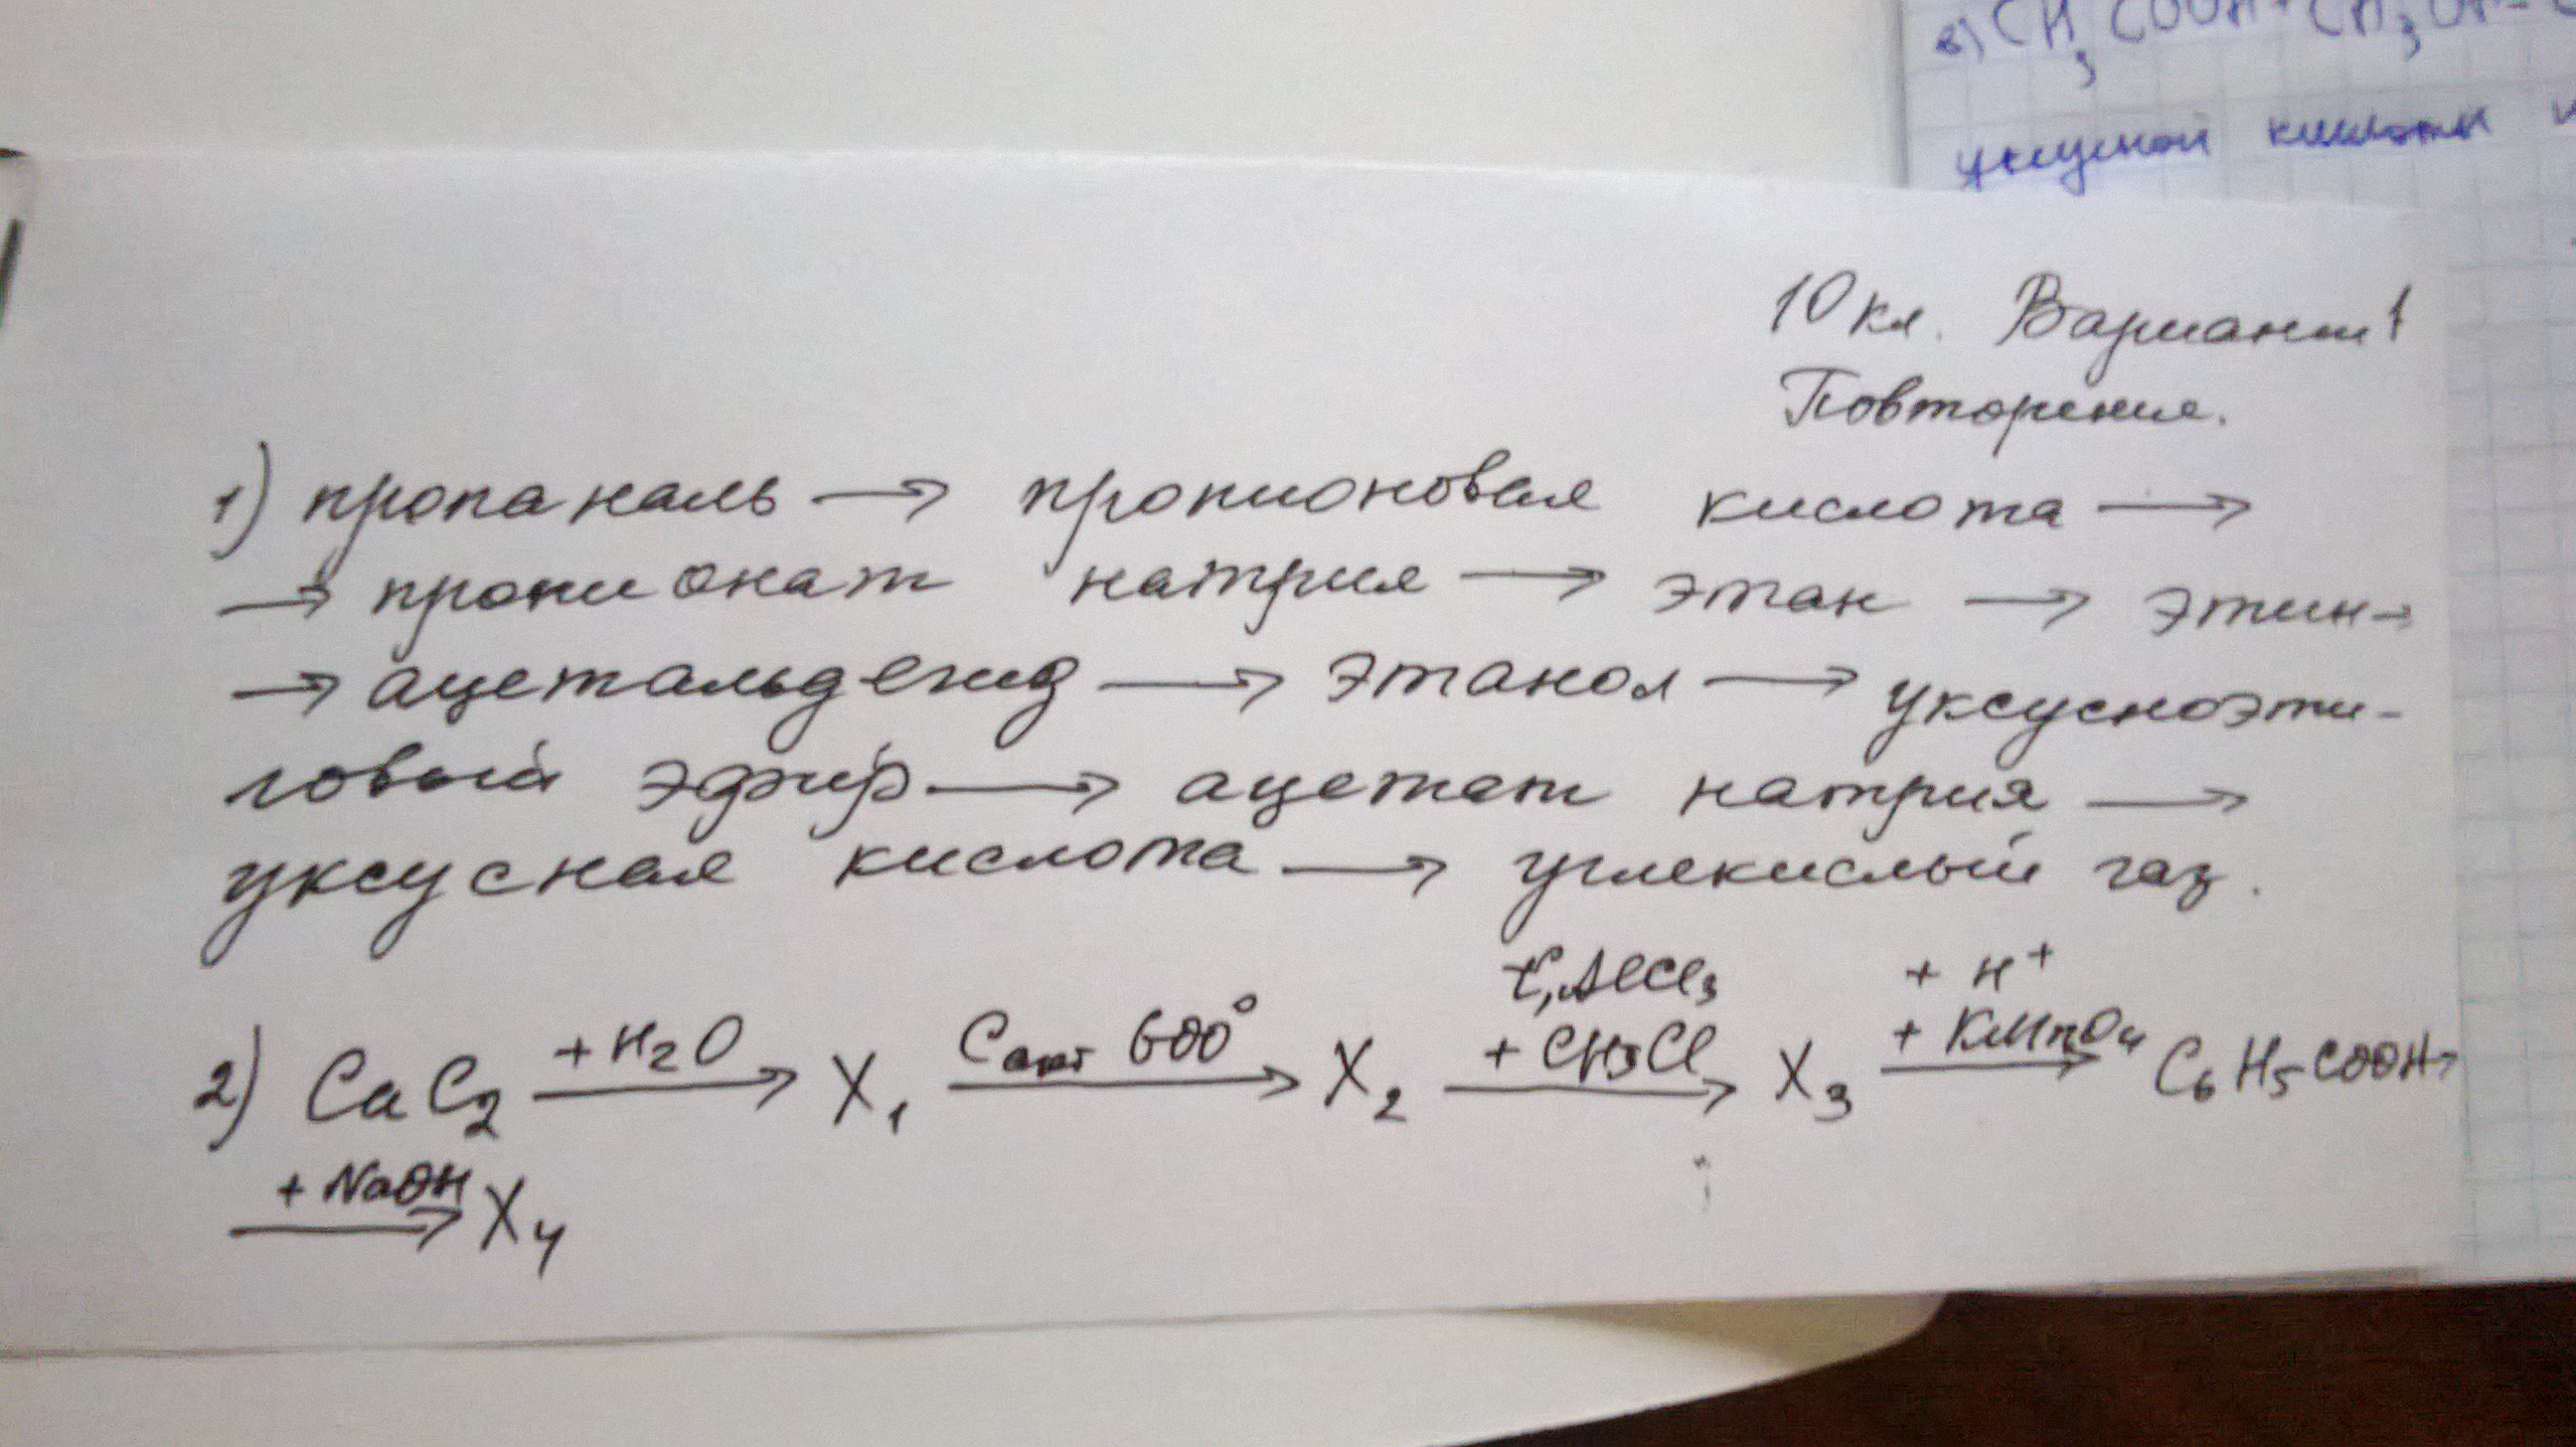 в) CH₃COOH + CH₃OH
уксусной кислоты и
10 кл. Вариант 1
Повторение.
1) пропаналь → пропионовая кислота →
→ пропионат натрия → этан → этин →
→ ацетальдегид → этанол → уксусноэти-
ловый эфир → ацетат натрия →
уксусная кислота → углекислый газ.
t°, AlCl₃ + H⁺
2) CaC₂ + H₂O → X₁ Cакт 600° → X₂ + CH₃Cl → X₃ + KMnO₄ → C₆H₅COOH →
+ NaOH → X₄